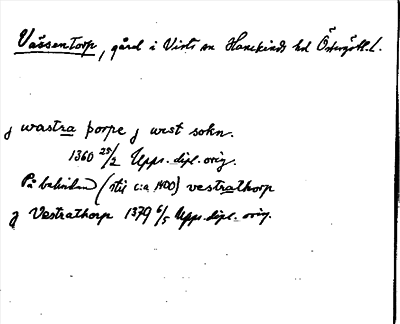 Vässentorp, gård i Vists sn Hanekinds hd Östergötl. l.
j wastra þorpe j wist sokn.
1360 25/2 Upps. dipl. orig.
På baksidan (stil c:a 1400) vestrathorp
j Vestrathorp 1379 6/5 Upps. dipl. orig.